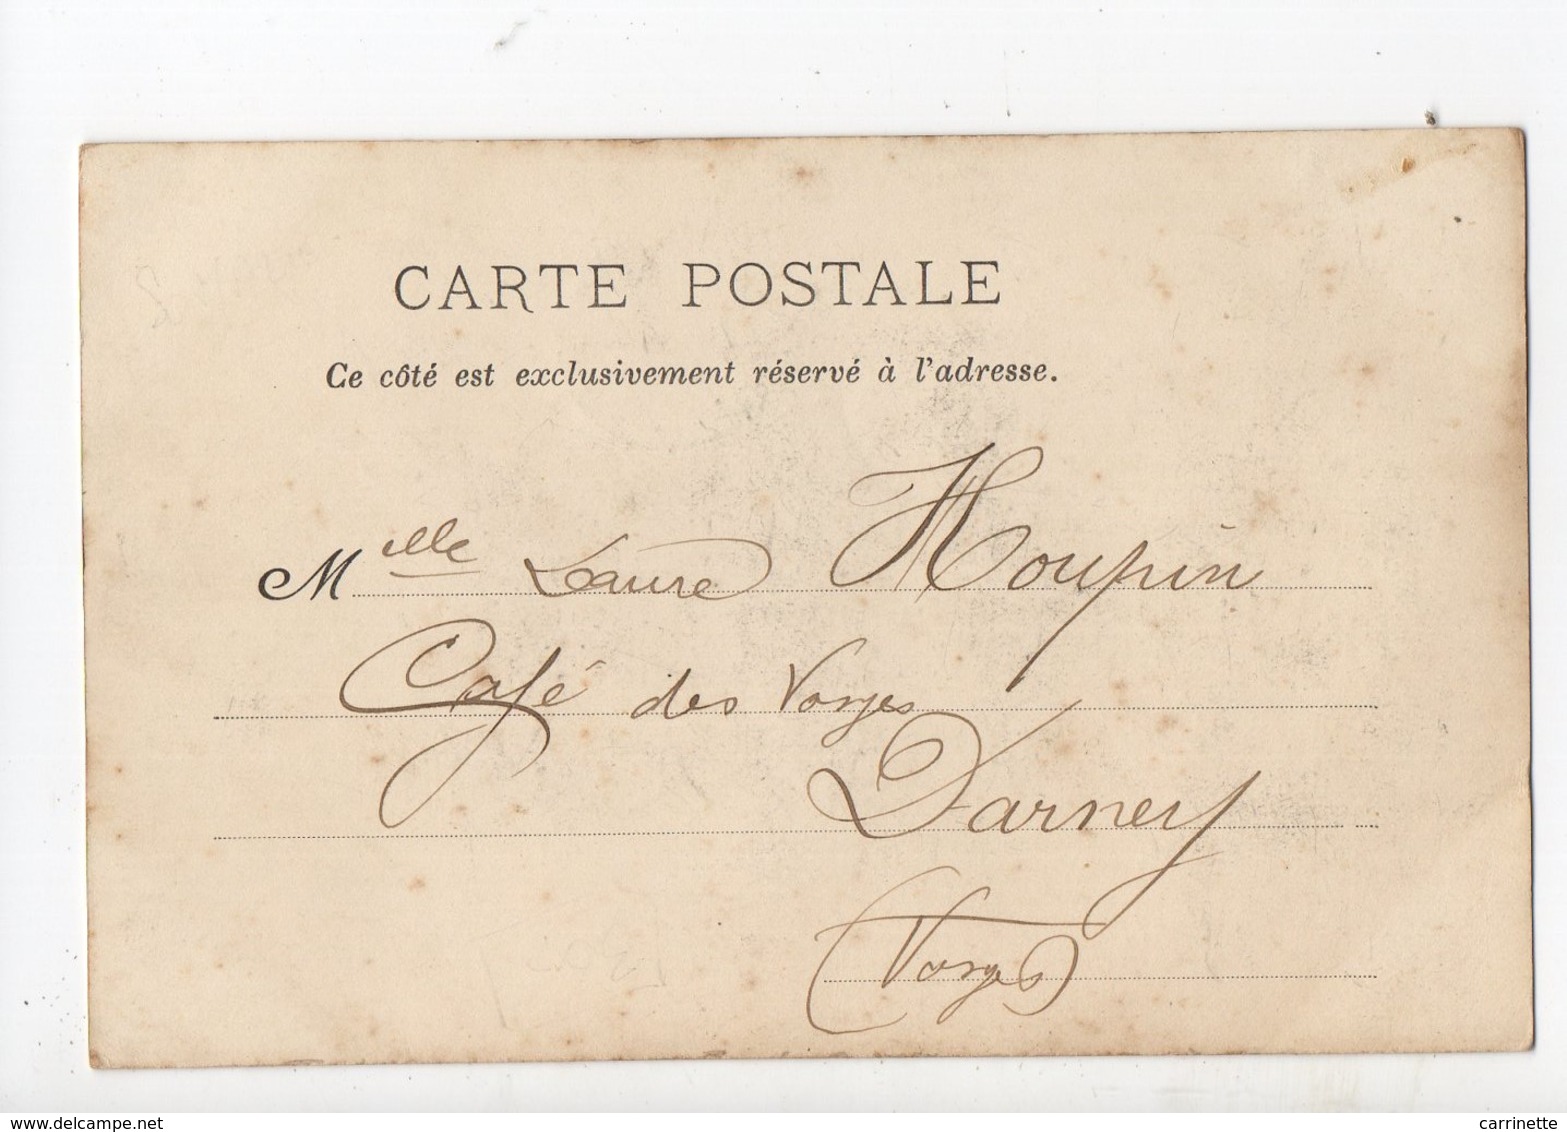 CARTE POSTALE
Ce côté est exclusivement réservé à l'adresse.
Melle Laure Houpin
Café des Vosges
Darney
(Vosges)
www.delcampe.net
carrinette